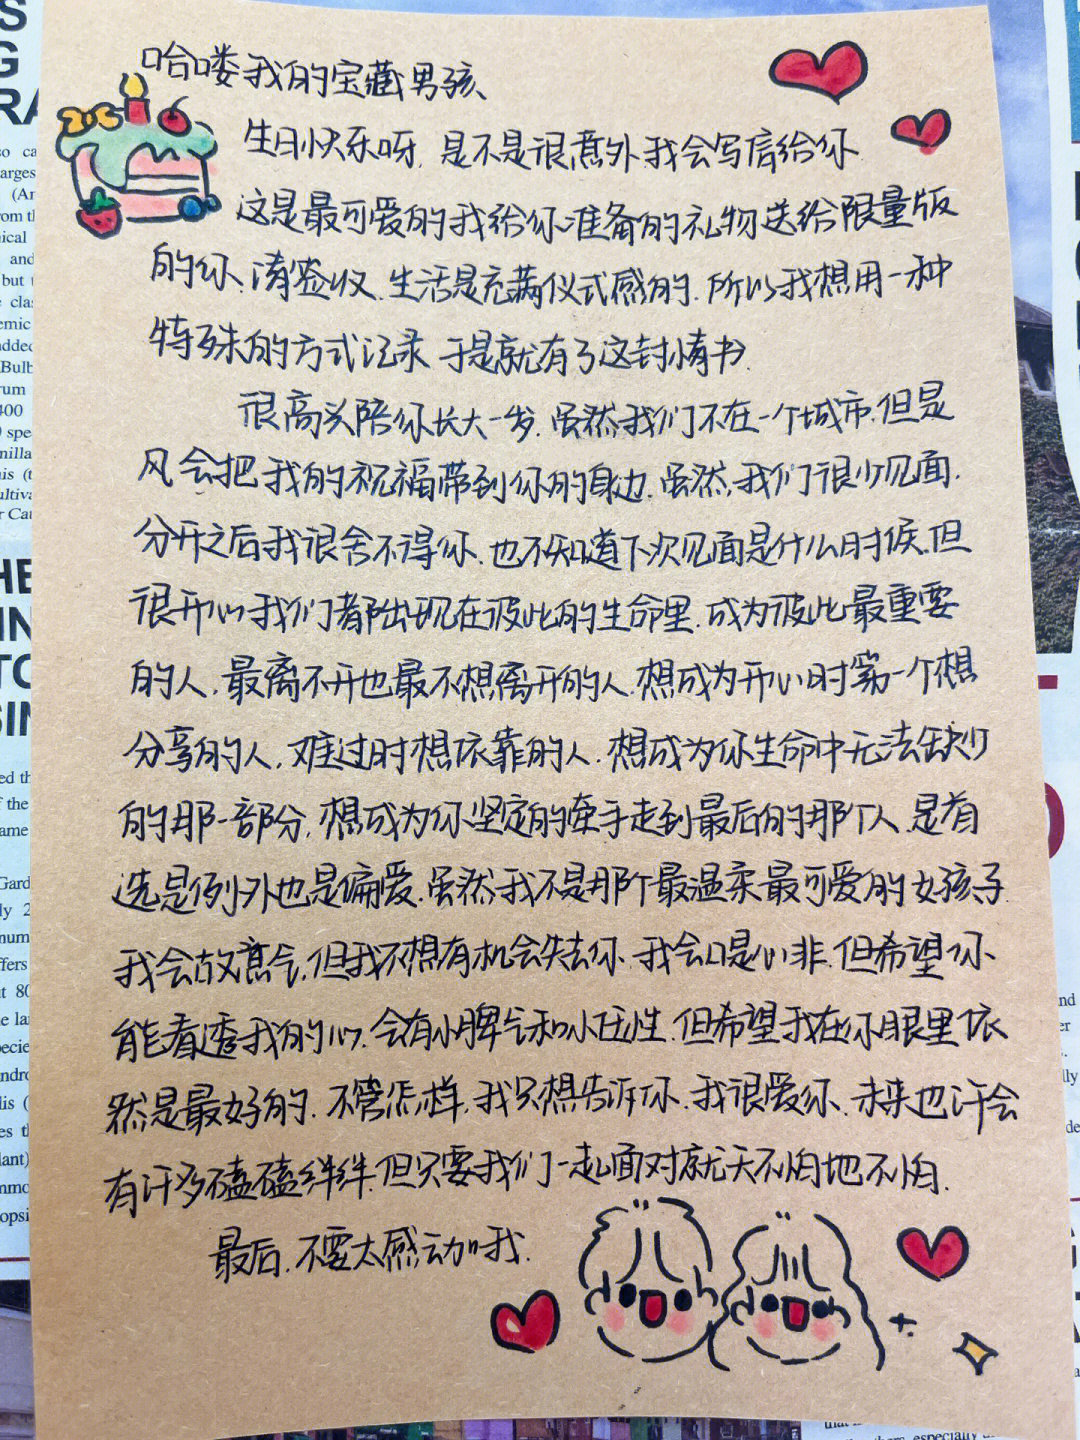 哈喽我的宝藏男孩、
生日快乐呀.是不是很意外我会写信给你
这是最可爱的我给你准备的礼物送给限量版
的你.请签收.生活是充满仪式感的.所以我想用一种
特殊的方式记录 于是就有了这封情书.
很高兴陪你长大一岁.虽然我们不在一个城市.但是
风会把我的祝福带到你的身边.虽然,我们很少见面.
分开之后我很舍不得你.也不知道下次见面是什么时候.但
很开心我们都出现在彼此的生命里.成为彼此最重要
的人.最离不开也最不想离开的人.想成为开心时第一个想
分享的人.难过时想依靠的人.想成为你生命中无法缺少
的那一部分.想成为你坚定的牵手走到最后的那个人.是首
选是例外也是偏爱.虽然我不是那个最温柔最可爱的女孩子.
我会故意气.但我不想有机会失去你.我会口是心非.但希望你
能看透我的心.会有小脾气和小任性.但希望我在你眼里依
然是最好的.不管怎样,我只想告诉你.我很爱你.未来也许会
有许多磕磕绊绊.但只要我们一起面对就天不怕地不怕.
最后.不要太感动哦.